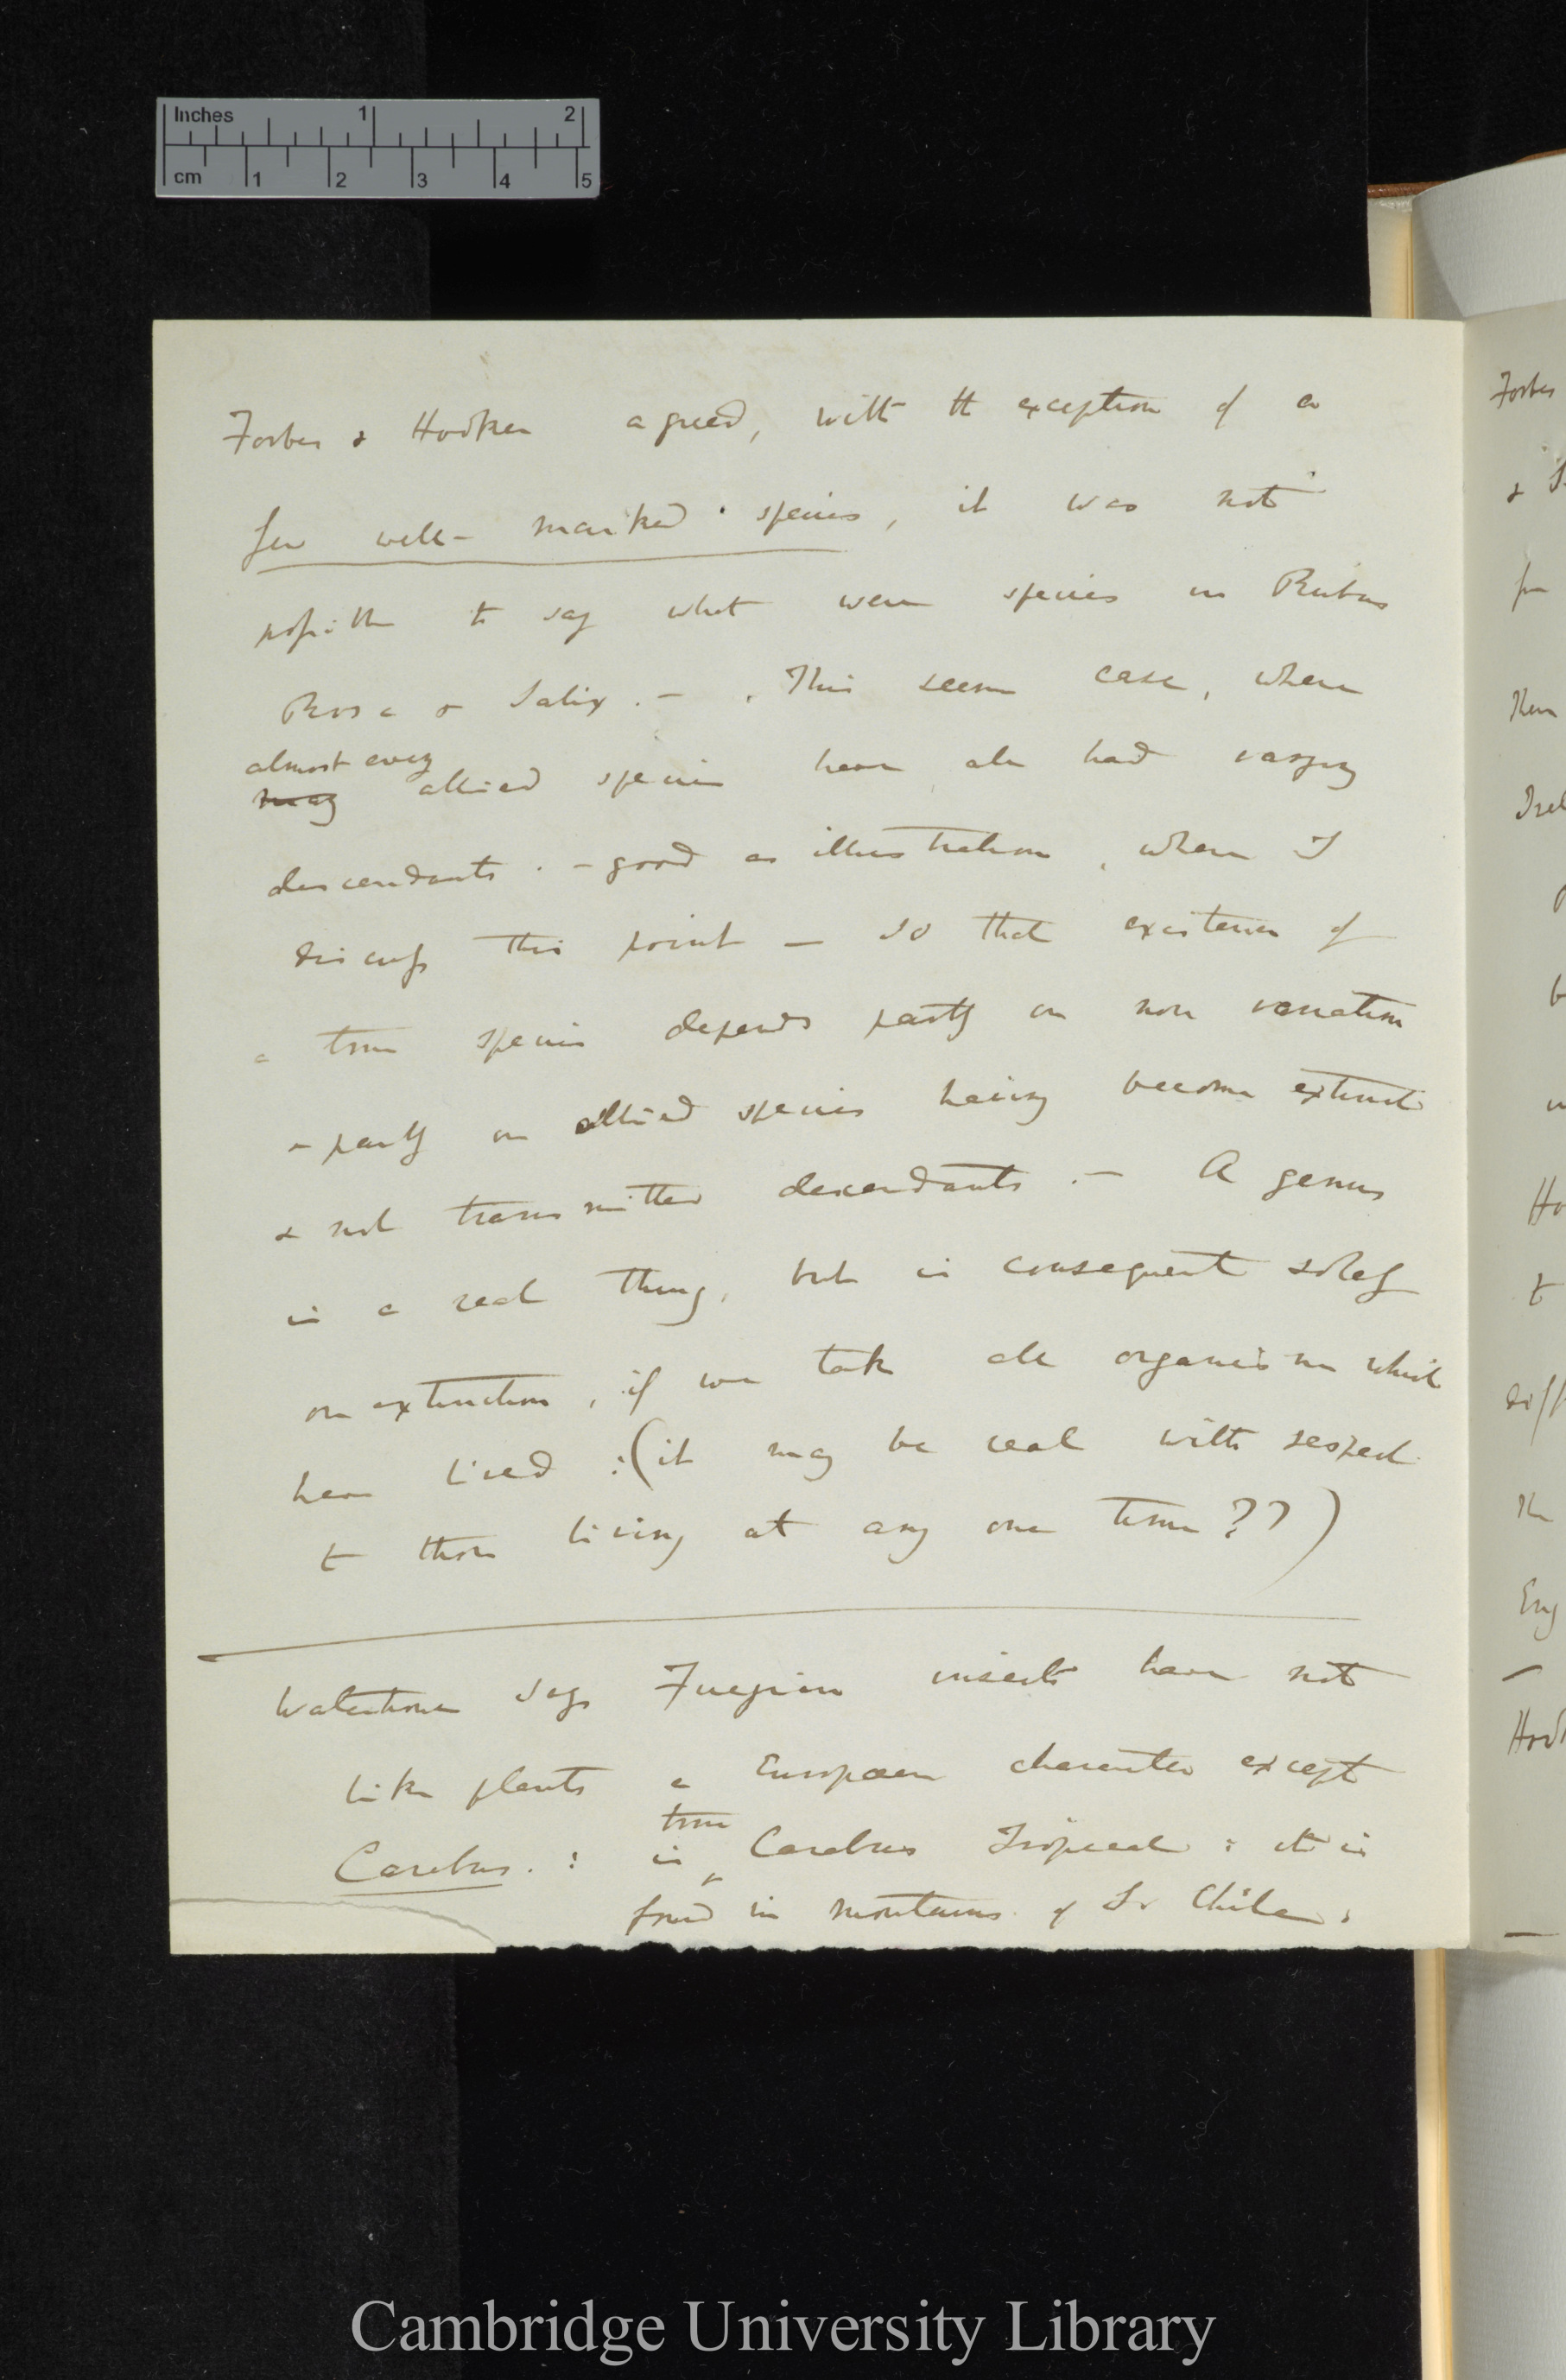 Inches 1 2
cm 1 2 3 4 5
Forbes & Hooker agreed, with the exception of a
few well-marked species, it was not
possible to say what were species in Rubus
Rosa & Salix. — This seems case, where
almost every
many allied species have all had varying
descendants. — good as illustration, where I
discuss this point — so that existence of
a true species depends partly on non variation
— partly on allied species having become extinct
& not transmitted descendants. — A genus
is a real thing, but is consequent solely
on extinction, if we take all organisms which
have lived : (it may be real with respect
to those living at any one time??)
Waterhouse says Fuegian insects have not
like plants a European character except
true
Carabus. : is Carabus Tropical : it is
found in mountains of S. Chile.
Forbes
&
for
Ho
to
diff
The
Eng
Hook
Cambridge University Library